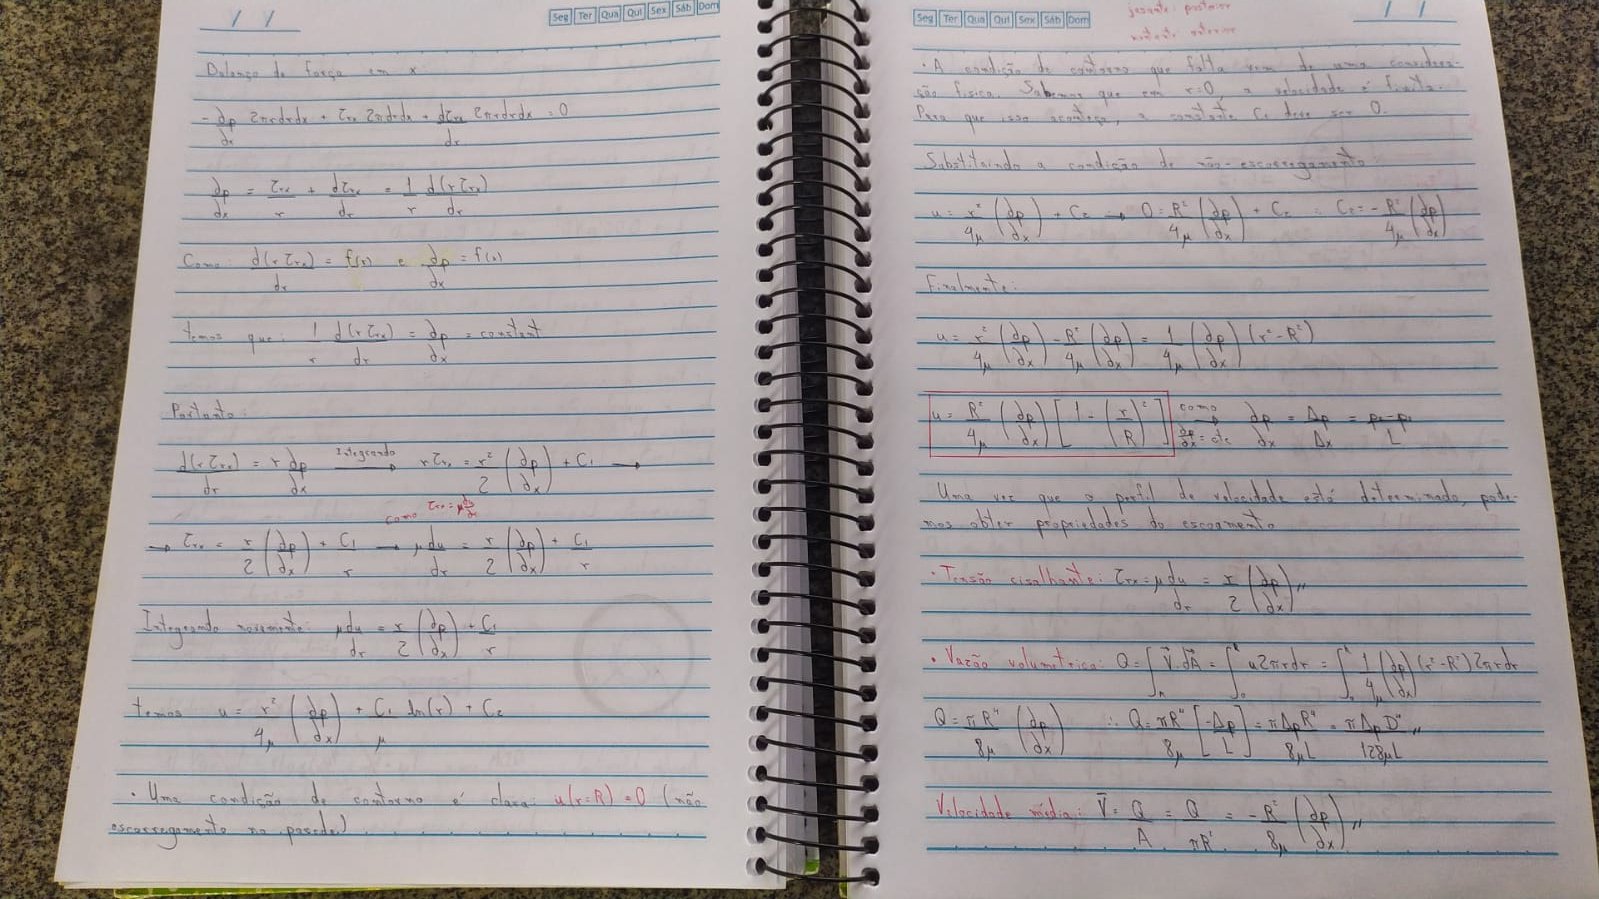 / /
Seg Ter Qua Qui Sex Sáb Dom
Balanço de força em x
- ∂p/∂x 2πrdrdx + τrx 2πdrdx + dτrx/dr 2πrdrdx = 0
∂p/∂x = τrx/r + dτrx/dr = 1/r d(rτrx)/dr
Como: d(rτrx)/dr = f(r) e ∂p/∂x = f(x)
temos que: 1/r d(rτrx)/dr = ∂p/∂x = constant
Portanto:
d(rτrx)/dr = r ∂p/∂x Integrando → rτrx = r²/2 (∂p/∂x) + C1 →
como τrx = μ du/dr
→ τrx = r/2 (∂p/∂x) + C1/r → μ du/dr = r/2 (∂p/∂x) + C1/r
Integrando novamente: μ du/dr = r/2 (∂p/∂x) + C1/r
temos u = r²/4μ (∂p/∂x) + C1/μ ln(r) + C2
· Uma condição de contorno é clara: u(r=R) = 0 (não
escorregamento na parede)
Seg Ter Qua Qui Sex Sáb Dom
jusante: posterior
montante: anterior
/ /
· A condição de contorno que falta vem de uma considera-
ção física. Sabemos que em r=0, a velocidade é finita.
Para que isso aconteça, a constante C1 deve ser 0.
Substituindo a condição de não-escorregamento
u = r²/4μ (∂p/∂x) + C2 → 0 = R²/4μ (∂p/∂x) + C2 ∴ C2 = - R²/4μ (∂p/∂x)
Finalmente:
u = r²/4μ (∂p/∂x) - R²/4μ (∂p/∂x) = 1/4μ (∂p/∂x) (r² - R²)
u = R²/4μ (∂p/∂x) [1 - (r/R)²] como ∂p/∂x = cte → ∂p/∂x = Δp/Δx = p2-p1/L
Uma vez que o perfil de velocidade está determinado, pode-
mos obter propriedades do escoamento
· Tensão cisalhante: τrx = μ du/dr = r/2 (∂p/∂x) ,,
· Vazão volumétrica: Q = ∫A V⃗.dA⃗ = ∫0^R u2πrdr = ∫0^R 1/4μ (∂p/∂x) (r²-R²) 2πrdr
Q = πR⁴/8μ (∂p/∂x) ∴ Q = πR⁴/8μ [-Δp/L] = πΔpR⁴/8μL = πΔpD⁴/128μL ,,
Velocidade média: V̄ = Q/A = Q/πR² = - R²/8μ (∂p/∂x) ,,